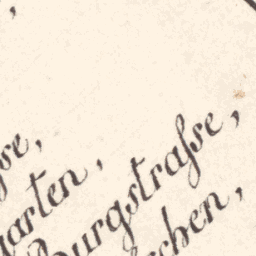 se,
garten,
Burgstraſse,
chen,